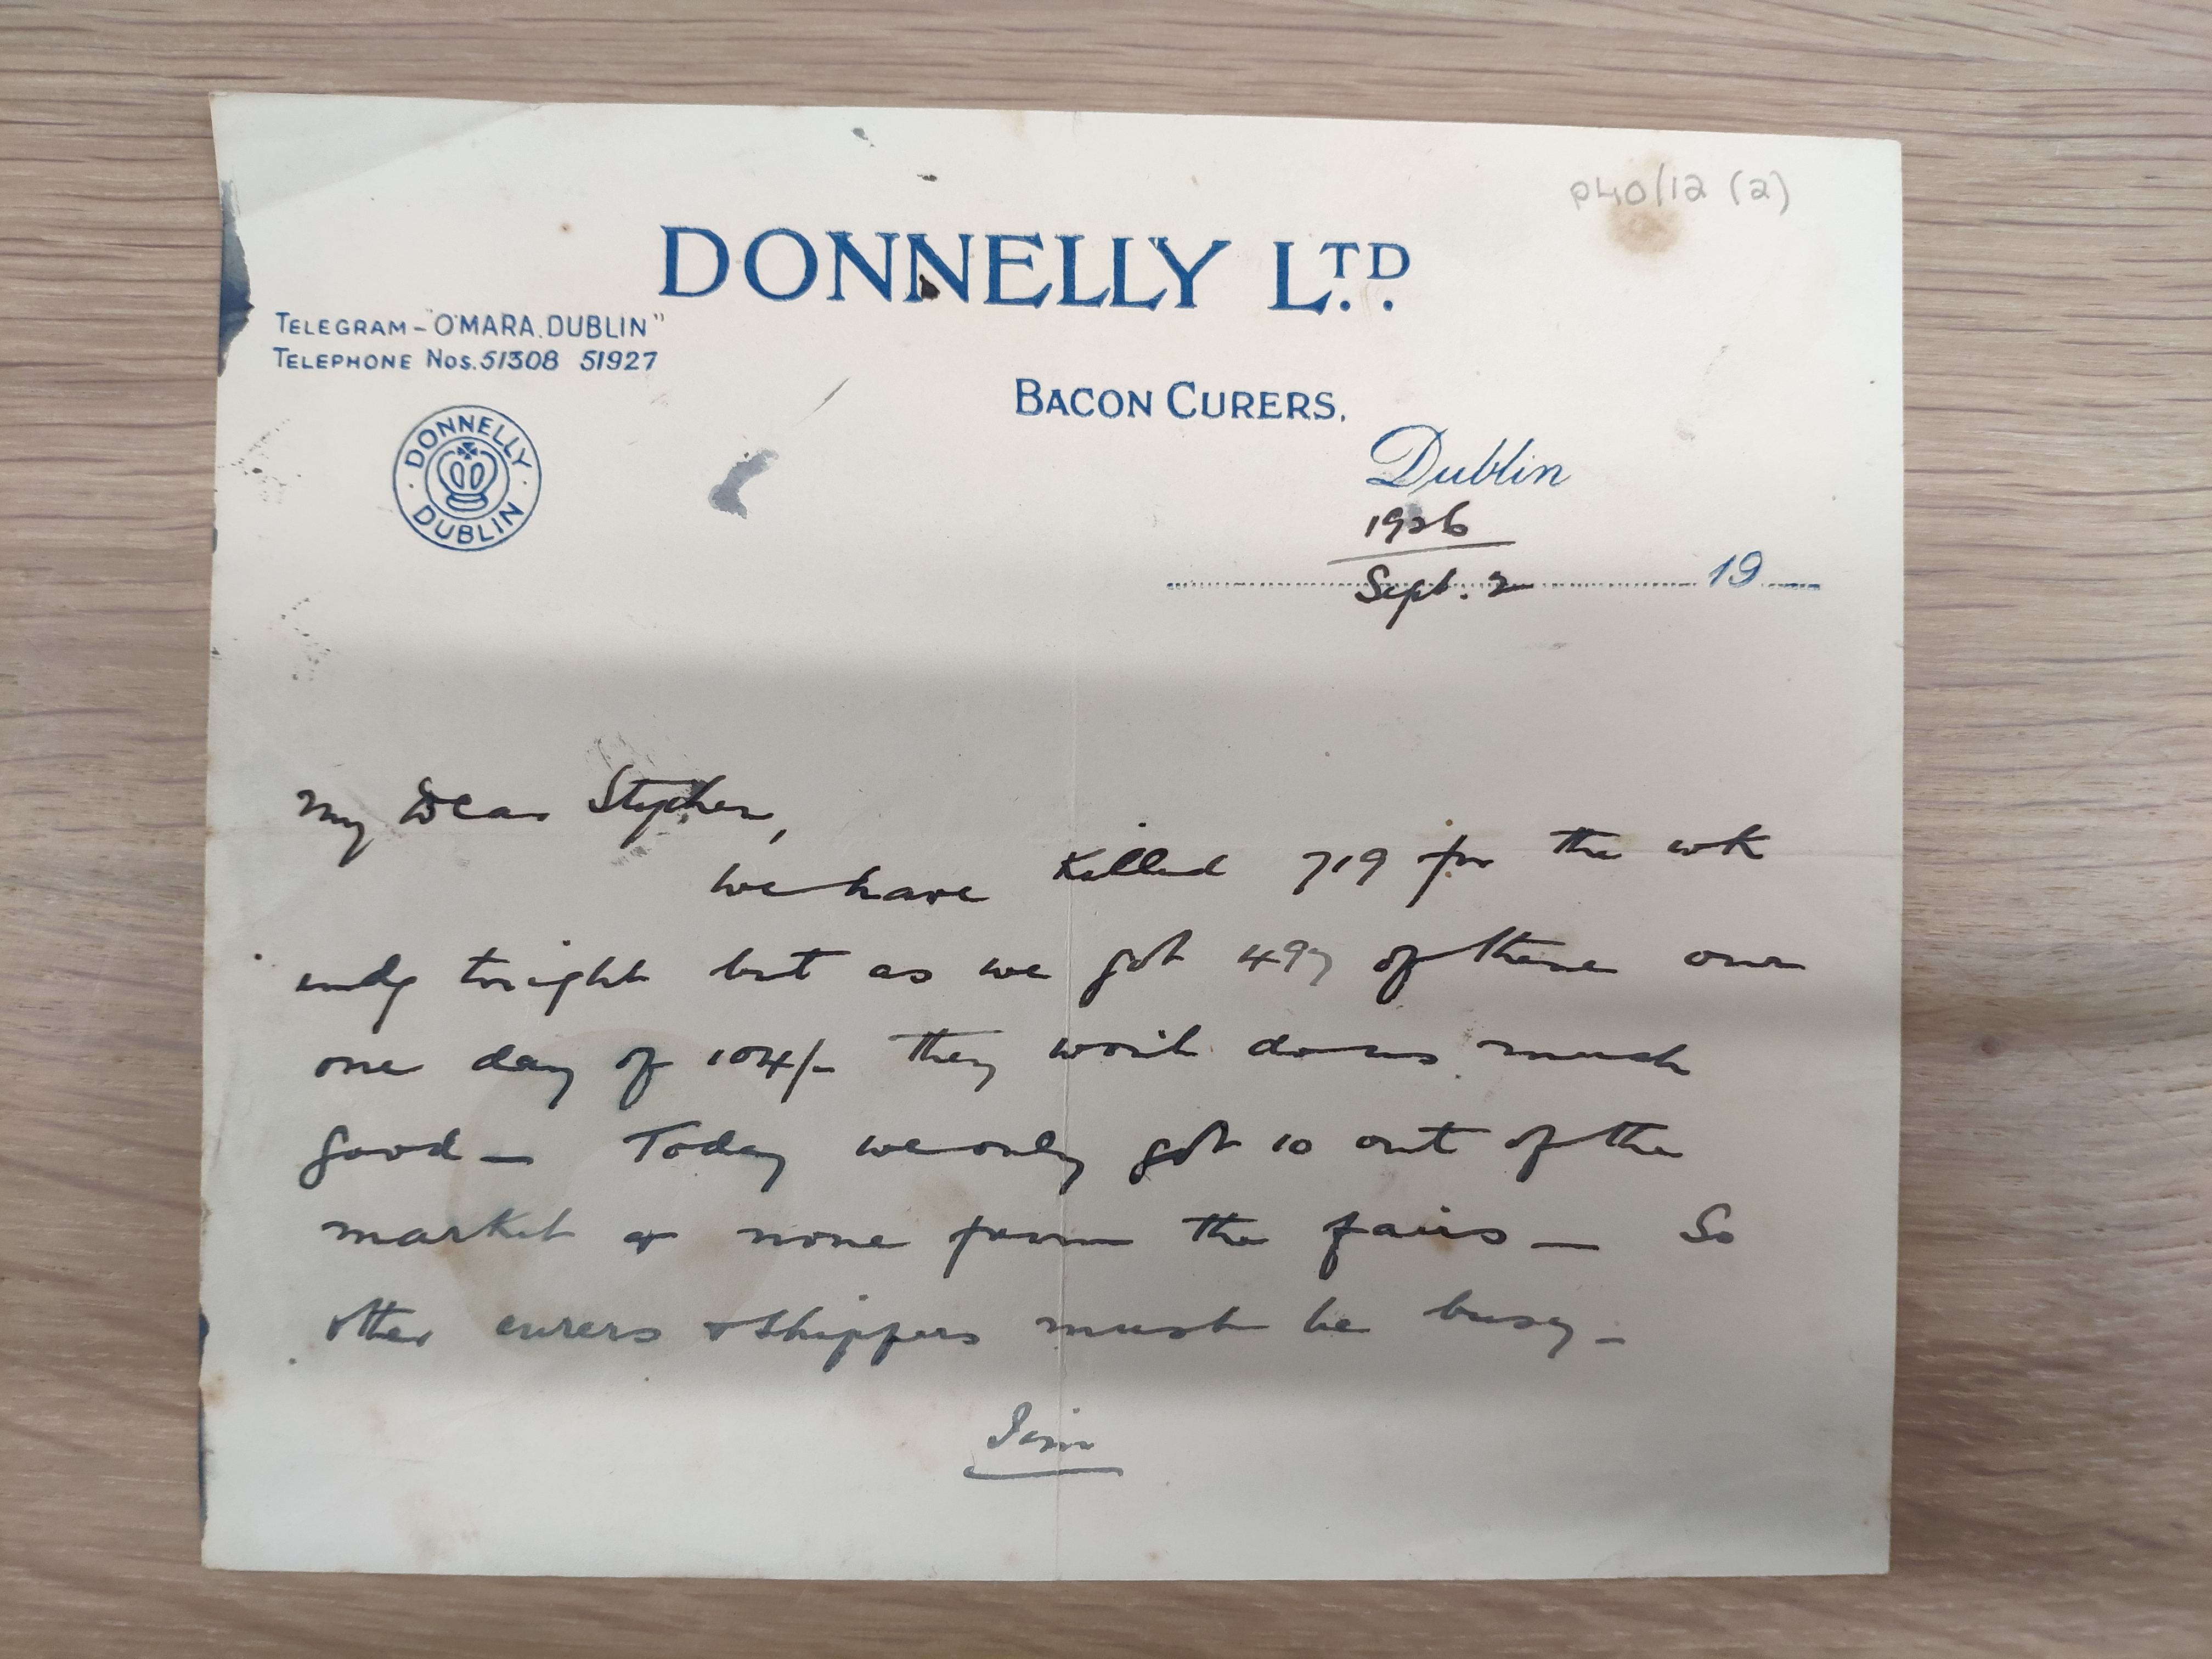 P40/12 (2)
DONNELLY LTD.
TELEGRAM - "O'MARA. DUBLIN"
TELEPHONE Nos. 51308 51927
BACON CURERS,
DONNELLY
DUBLIN
Dublin
1926
Sept. 2 19
My Dear Stephen,
We have Killed 719 for the wk
endg tonight but as we got 497 of these our
one day of 104/- they won't do us much
good — Today we only got 10 out of the
market & none from the fairs — So
other curers & shippers must be busy —
Jim